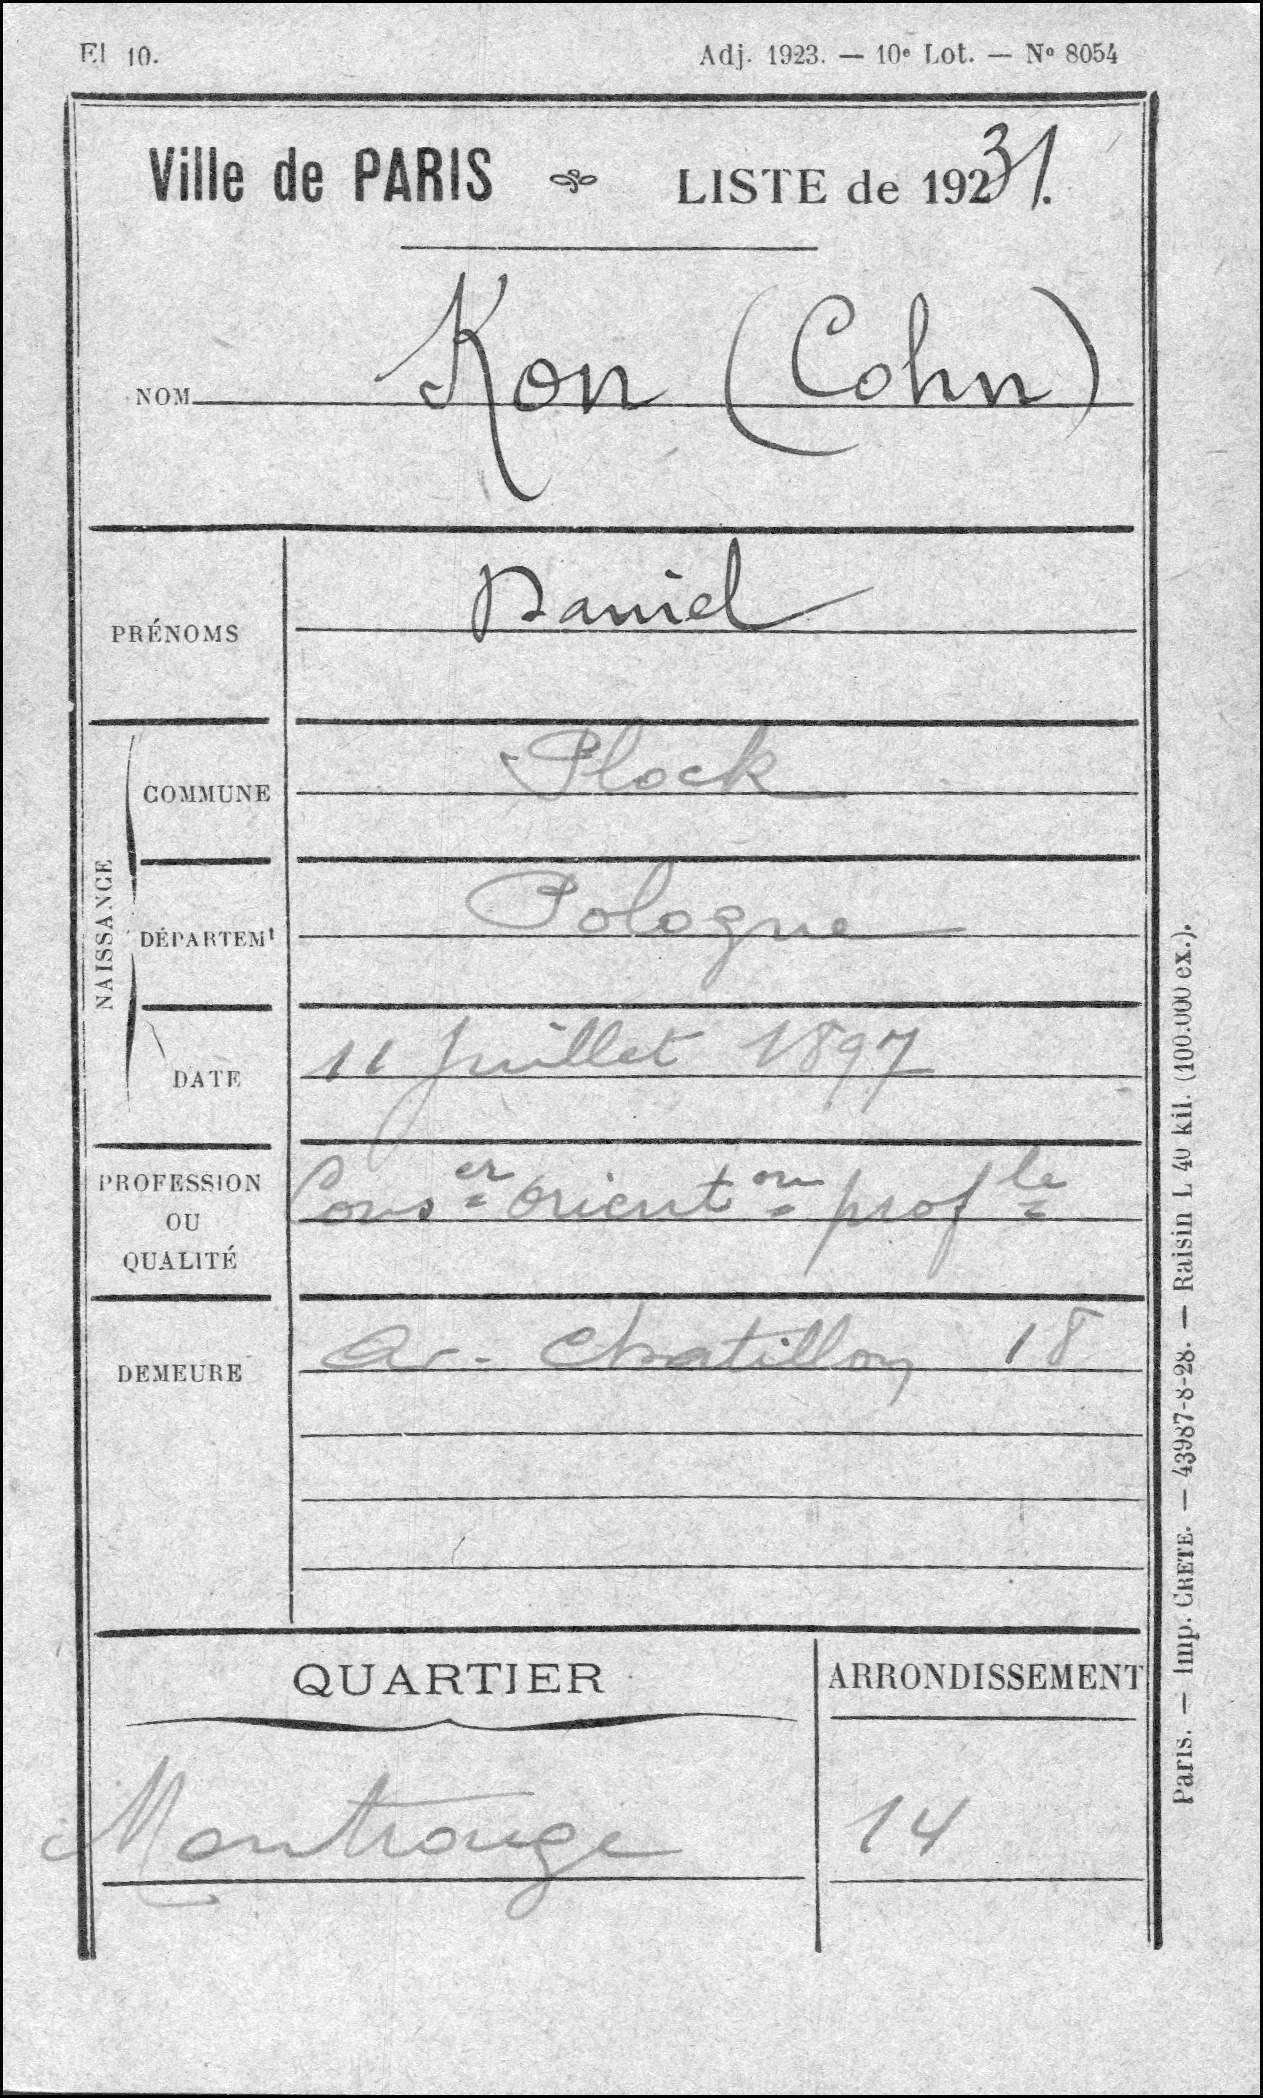 El 10.
Adj. 1923. — 10e Lot. — No 8054
Ville de PARIS LISTE de 19231.
NOM Kon (Cohn)
PRÉNOMS Daniel
NAISSANCE
COMMUNE Plock
DÉPARTEMt Pologne
DATE 11 Juillet 1897
PROFESSION OU QUALITÉ Conser orienton profle
DEMEURE Av. Chatillon 18
QUARTIER ARRONDISSEMENT
Montrouge 14
Paris. — Imp. CRETE. — 43987-8-28. — Raisin L 40 kil. (100.000 ex.).